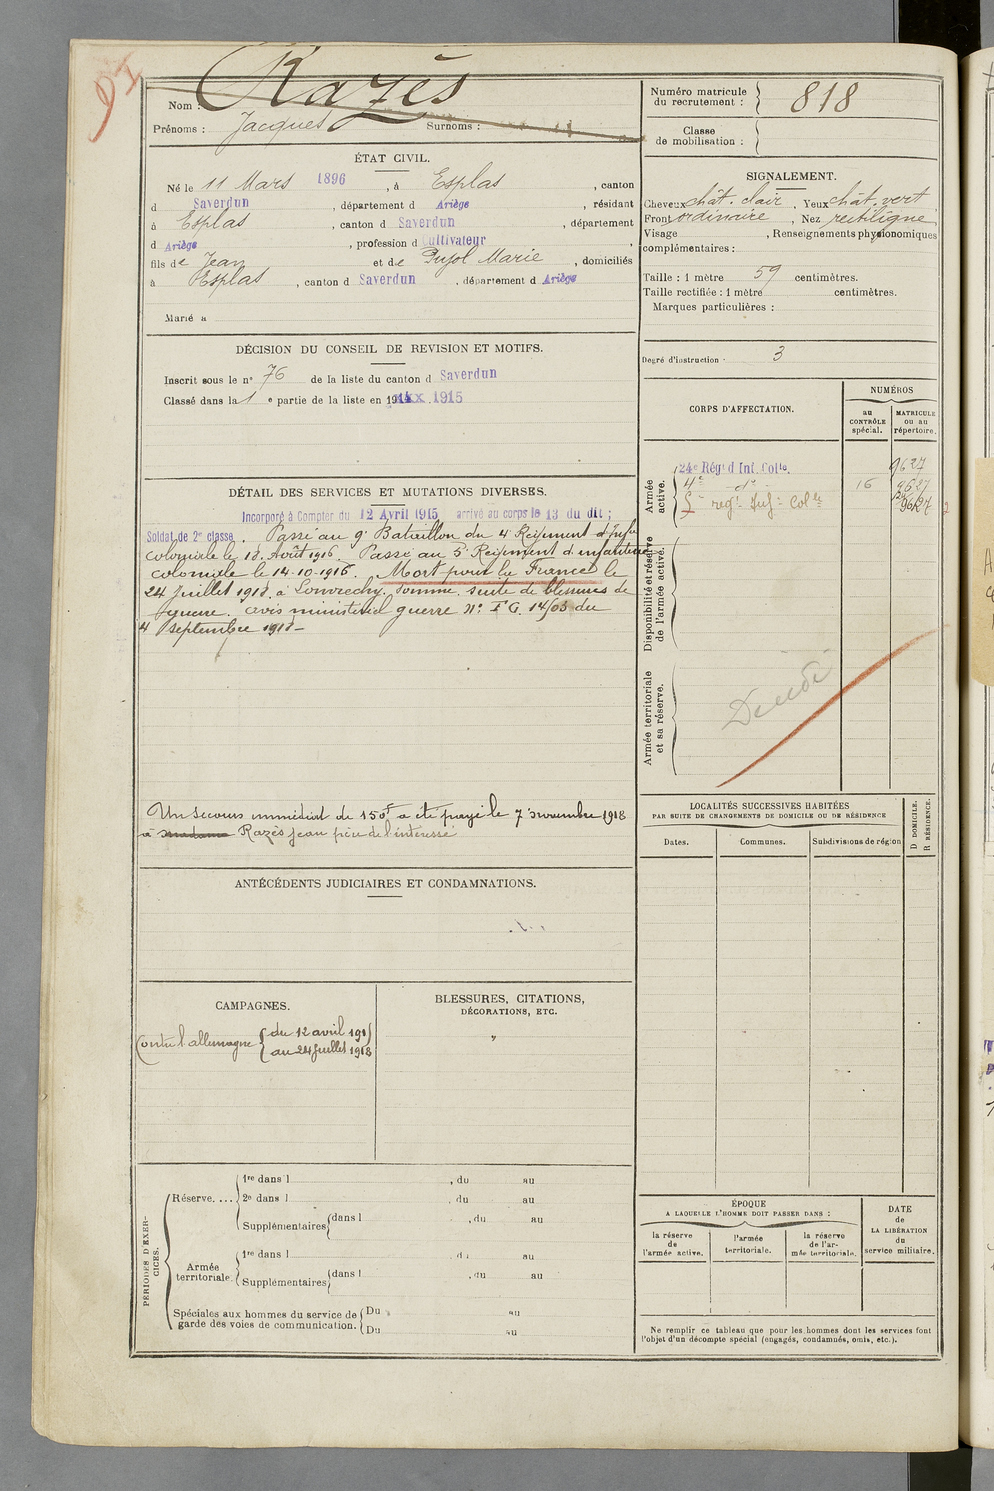 Nom : Razès
Prénoms : Jacques Surnoms :
Numéro matricule du recrutement : 818
Classe de mobilisation :
ÉTAT CIVIL.
Né le 11 Mars 1896, à Esplas, canton
d Saverdun, département d Ariège, résidant
à Esplas, canton d Saverdun, département
d Ariège, profession d Cultivateur
fils de Jean et de Pujol Marie, domiciliés
à Esplas, canton d Saverdun, département d Ariège
Marié à
SIGNALEMENT.
Cheveux chât. clair, Yeux chât. vert
Front ordinaire, Nez rectiligne
Visage , Renseignements physionomiques
complémentaires :
Taille : 1 mètre 59 centimètres.
Taille rectifiée : 1 mètre centimètres.
Marques particulières :
Degré d'instruction : 3
DÉCISION DU CONSEIL DE REVISION ET MOTIFS.
Inscrit sous le n° 76 de la liste du canton d Saverdun
Classé dans la 1 e partie de la liste en 1915
CORPS D'AFFECTATION.
NUMÉROS
au CONTRÔLE spécial.
MATRICULE ou au répertoire.
Armée active.
24e Régt d'Inf. Colle. 9627
4e do 16 9627
5e regt Inf. Colle 9627
Disponibilité et réserve de l'armée active.
Armée territoriale et sa réserve.
Décédé
DÉTAIL DES SERVICES ET MUTATIONS DIVERSES.
Incorporé à Compter du 12 Avril 1915 arrivé au corps le 13 du dit ;
Soldat de 2e classe. Passé au 9e Bataillon du 4e Régiment d'Infie
coloniale le 13 Août 1916. Passé au 5e Régiment d'infanterie
coloniale le 14-10-1916. Mort pour la France le
24 juillet 1918 à Louvrechy. Somme. suite de blessures de
guerre. avis ministériel guerre N°
4 septembre 1918-
Un secours immédiat de 150f a été payé le 7 novembre 1918
à madame Razès Jean père de l'intéressé
LOCALITÉS SUCCESSIVES HABITÉES
PAR SUITE DE CHANGEMENTS DE DOMICILE OU DE RÉSIDENCE
Dates. Communes. Subdivisions de région D DOMICILE. R RÉSIDENCE.
ANTÉCÉDENTS JUDICIAIRES ET CONDAMNATIONS.
CAMPAGNES.
Contre l'allemagne { du 12 avril 1915
au 24 Juillet 1918
BLESSURES, CITATIONS,
DÉCORATIONS, ETC.
"
PÉRIODES D'EXERCICES.
Réserve.... 1re dans l , du au
2e dans l , du au
Supplémentaires dans l , du au
Armée territoriale. 1re dans l , du au
Supplémentaires dans l , du au
Spéciales aux hommes du service de garde des voies de communication. Du au
Du au
ÉPOQUE
A LAQUELLE L'HOMME DOIT PASSER DANS :
la réserve de l'armée active.
l'armée territoriale.
la réserve de l'armée territoriale.
DATE de LA LIBÉRATION du service militaire.
Ne remplir ce tableau que pour les hommes dont les services font
l'objet d'un décompte spécial (engagés, condamnés, omis, etc.).